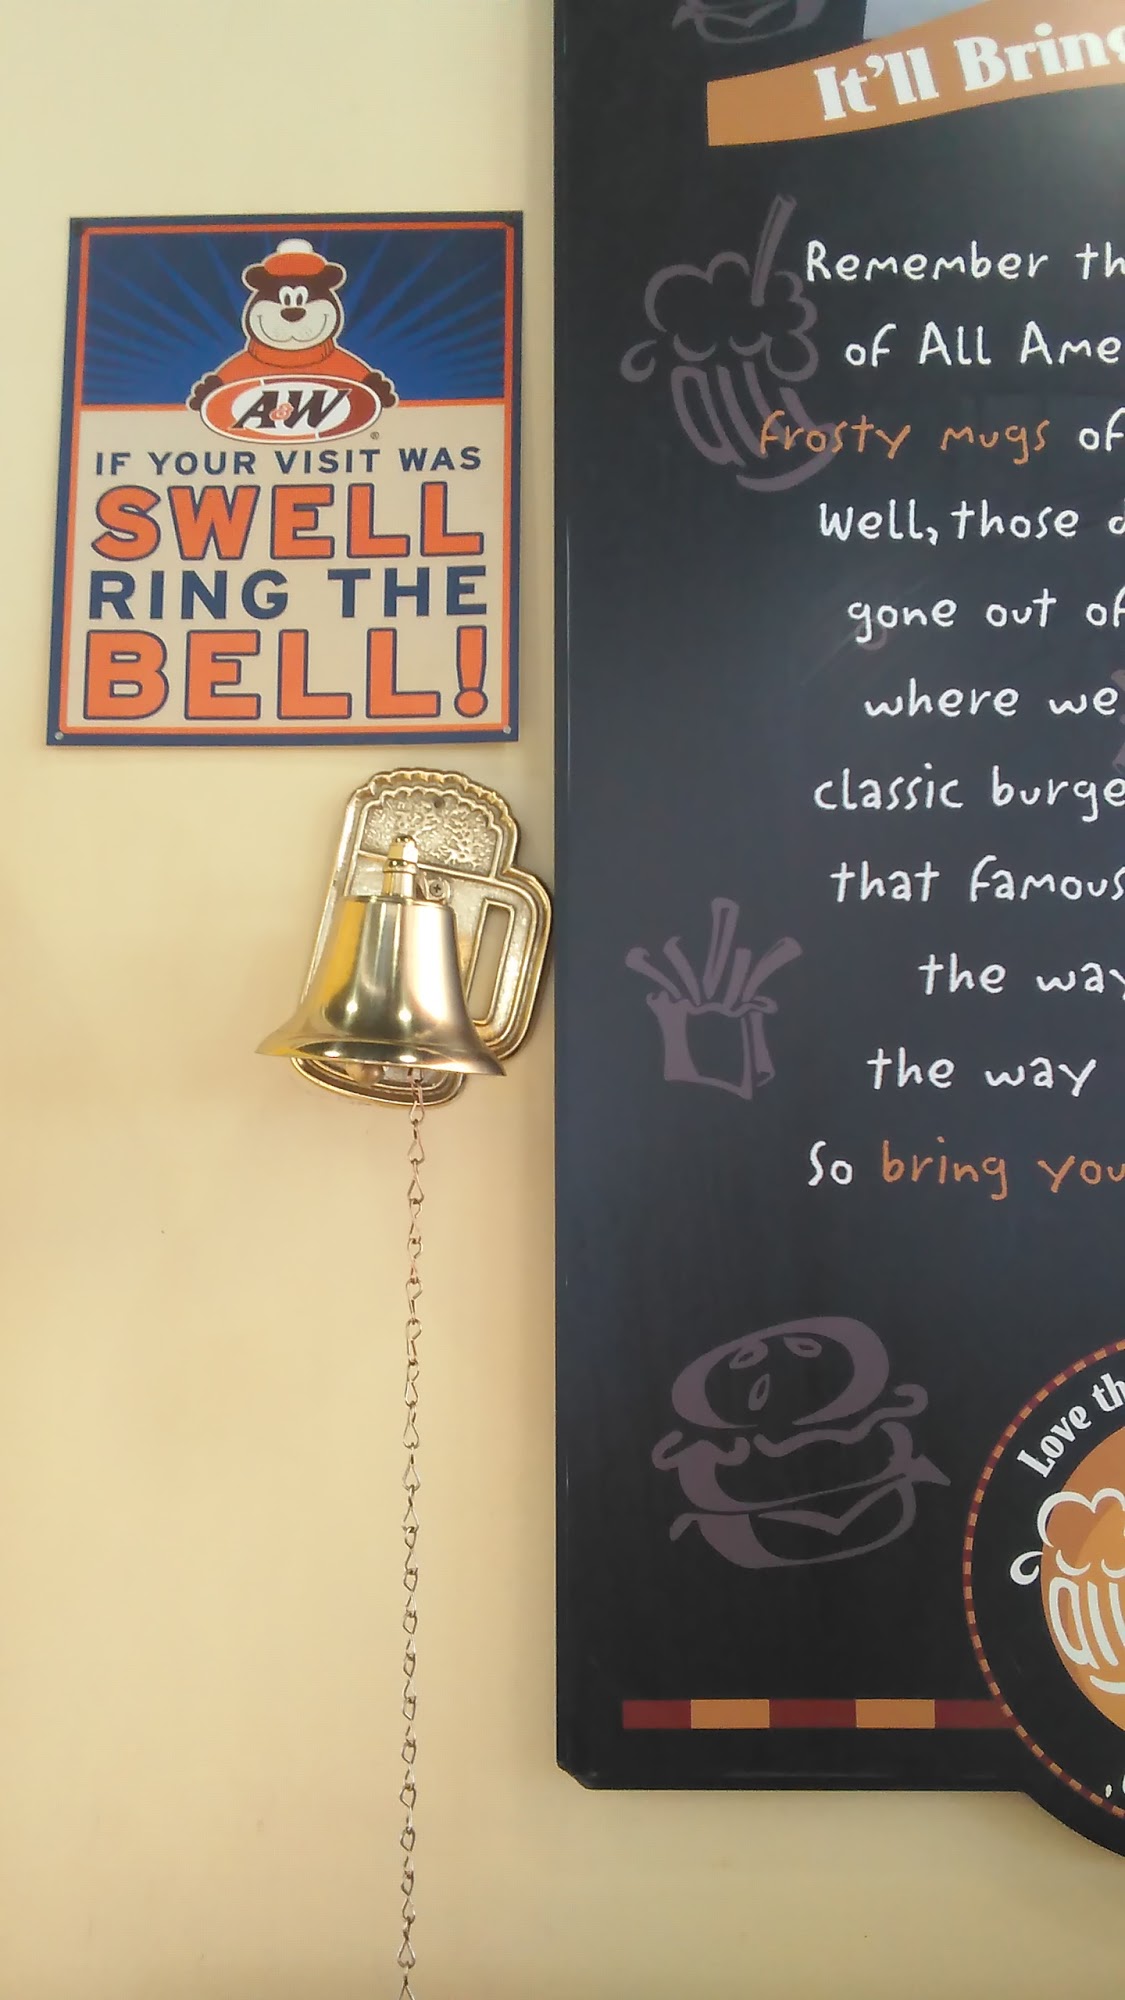 A&W
®
IF YOUR VISIT WAS
SWELL
RING THE
BELL!
It'll Bring
Remember
of All
frosty mugs of
Well, those
gone out of
where we
classic
that famous
the way
the way
So bring
Love